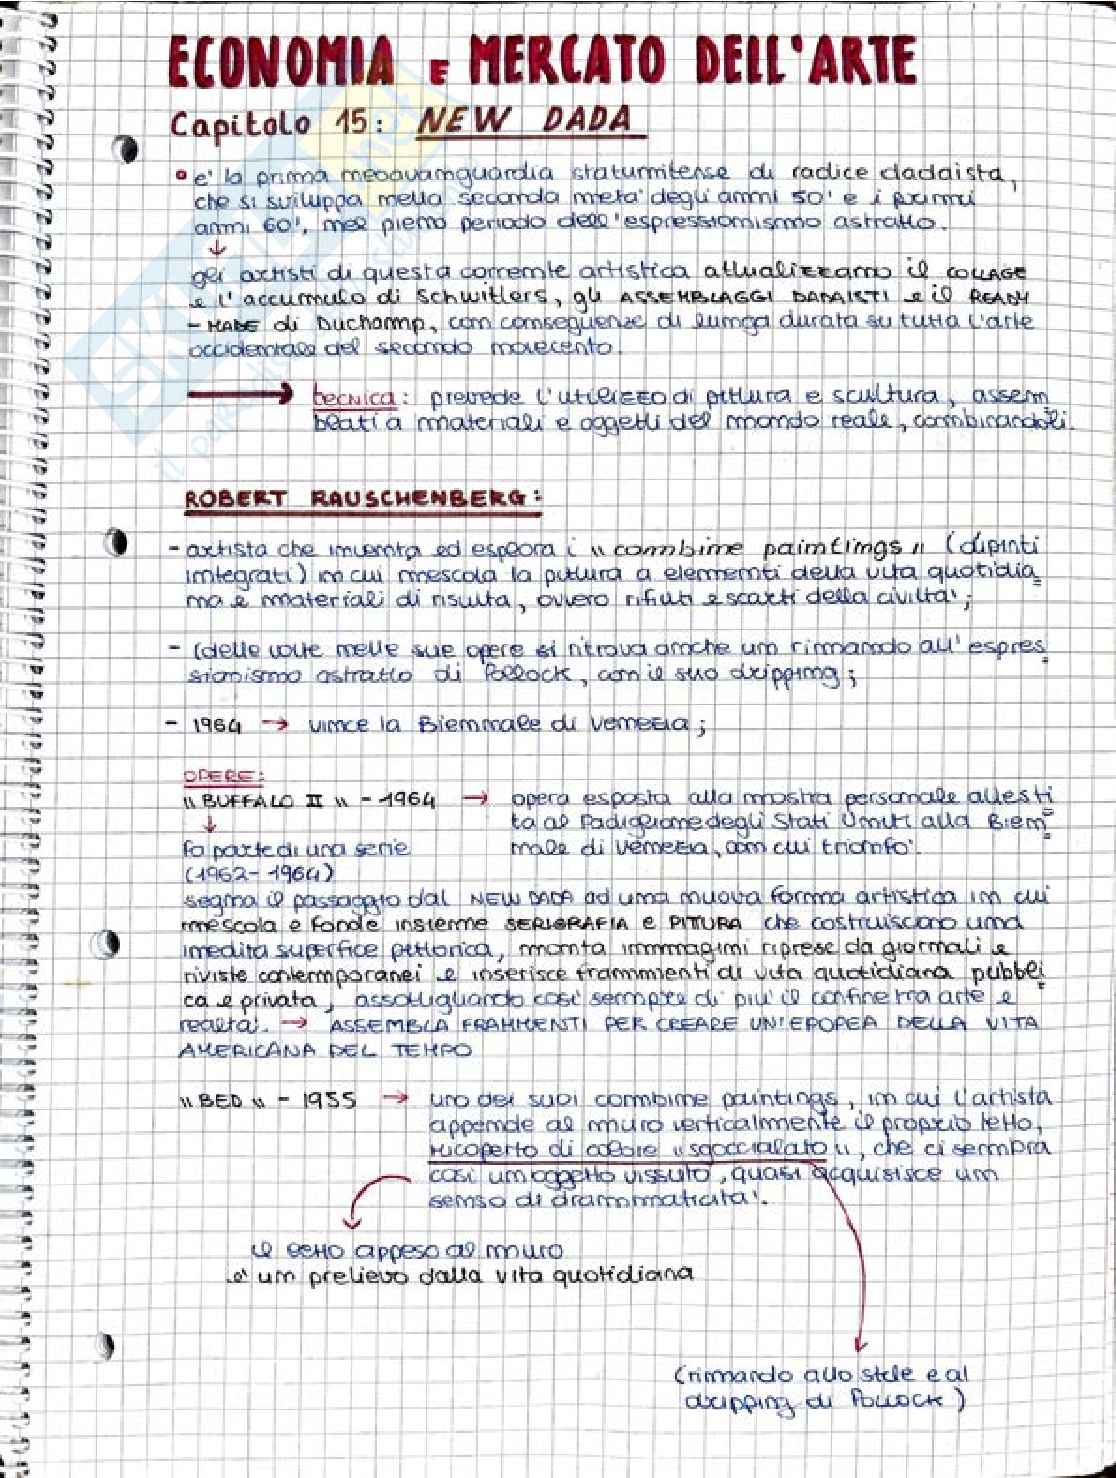 ECONOMIA E MERCATO DELL'ARTE
Capitolo 15: NEW DADA
e' la prima neoavanguardia statunitense di radice dadaista,
che si sviluppa nella seconda meta' degli anni 50' e i primi
anni 60', nel pieno periodo dell'espressionismo astratto.
↓
gli artisti di questa corrente artistica attualizzano il COLLAGE
e l'accumulo di Schwitters, gli ASSEMBLAGGI DADAISTI e il READY
- MADE di Duchamp, con conseguenze di lunga durata su tutta l'arte
occidentale del secondo novecento.
→ tecnica: prevede l'utilizzo di pittura e scultura, assem
blati a materiali e oggetti del mondo reale, combinandoli.
ROBERT RAUSCHENBERG:
- artista che inventa ed esplora i "combine paintings" (dipinti
integrati) in cui mescola la pittura a elementi della vita quotidia
na e materiali di risulta, ovvero rifiuti e scarti della civilta';
- (delle volte nelle sue opere si ritrova anche un rimando all'espres
sionismo astratto di Pollock, con il suo dripping;
- 1964 → vince la Biennale di Venezia;
OPERE:
"BUFFALO II" - 1964 → opera esposta alla mostra personale allesti
ta al Padiglione degli Stati Uniti alla Bien
nale di Venezia, con cui trionfo'.
↓
fa parte di una serie
(1962-1964)
segna il passaggio dal NEW DADA ad una nuova forma artistica in cui
mescola e fonde insieme SERIGRAFIA e PITURA che costruiscono una
inedita superfice pittorica, monta immmagimi riprese da giornali e
riviste contemporanei e inserisce frammenti di vita quotidiana pubbli
ca e privata, assottigliando cosi' sempre di piu' il confine tra arte e
realta'. → ASSEMBLA FRAMMENTI PER CREARE UN'EPOPEA DELLA VITA
AMERICANA DEL TEMPO
"BED" - 1955 → uno dei suoi combine paintings, in cui l'artista
appende al muro verticalmente il proprio letto,
ricoperto di colore "sgocciolato", che ci sembra
cosi' un oggetto vissuto, quasi acquisisce un
senso di drammaticita'.
il letto appeso al muro
e' un prelievo dalla vita quotidiana
(rimando allo stile e al
dripping di Pollock)